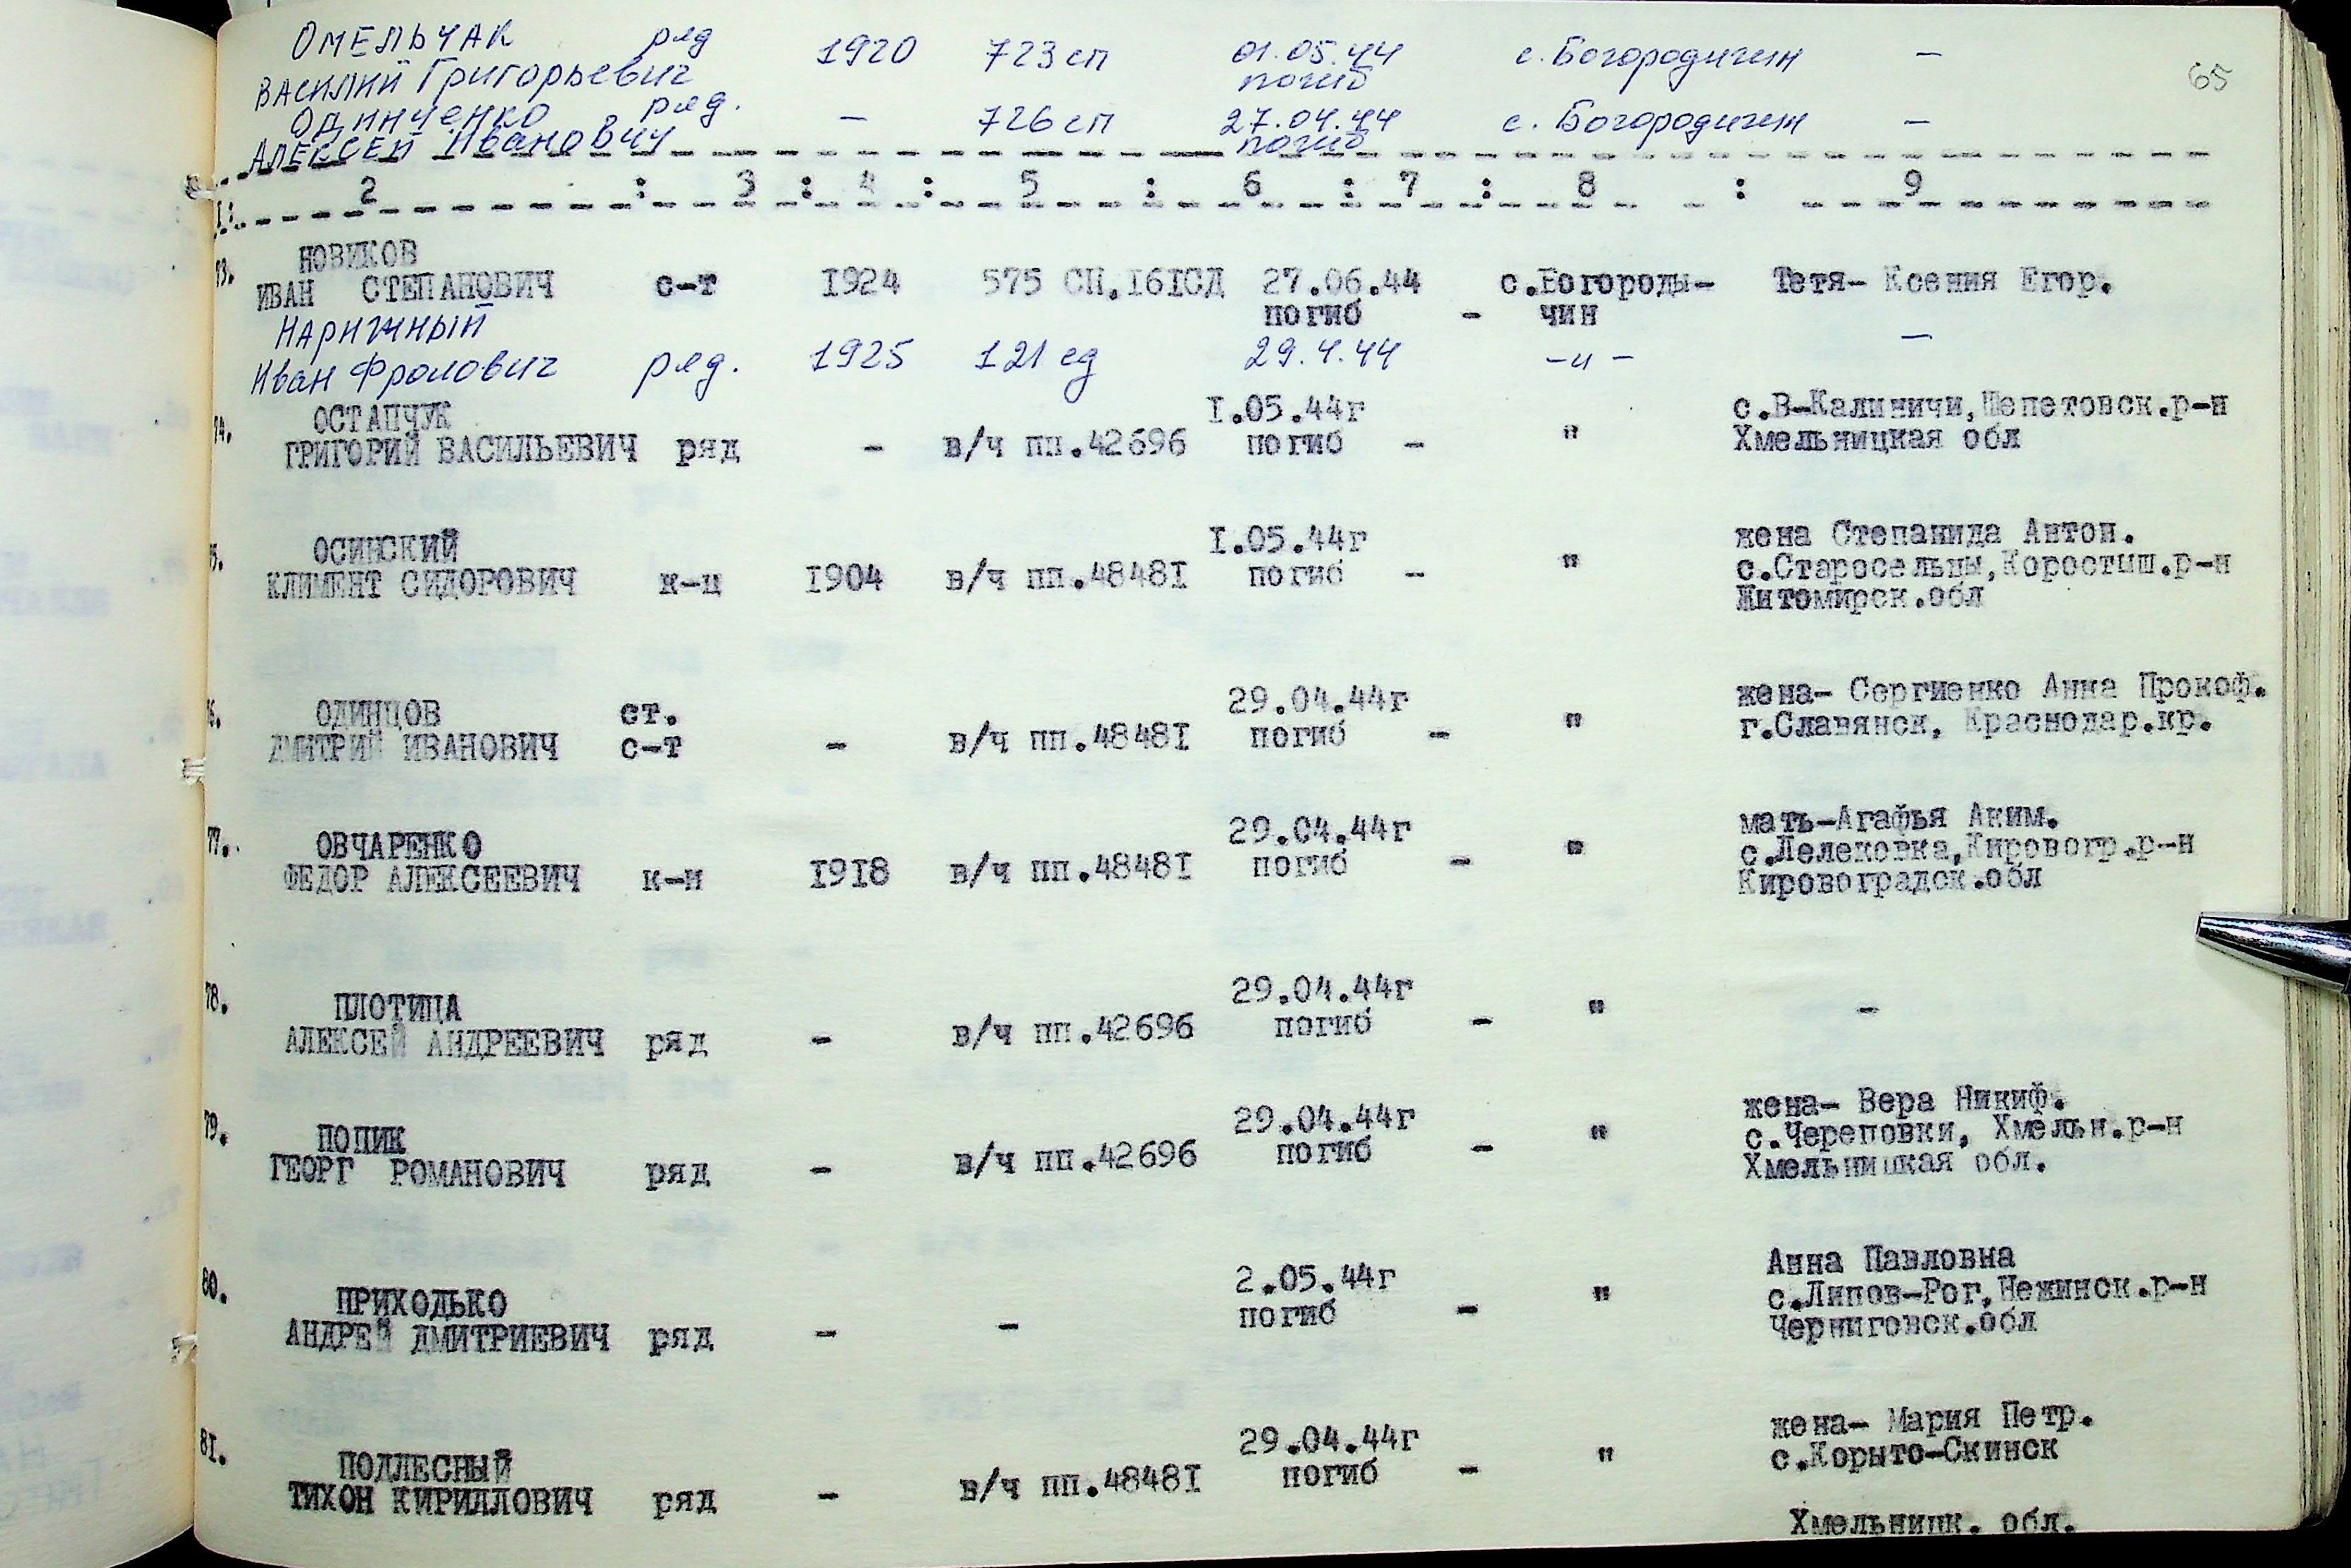 65
ОМЕЛЬЧАК ряд 1920 723 сп 01.05.44 с. Богородичин —
ВАСИЛИЙ Григорьевич погиб
ОДИНЧЕНКО ряд. — 726 сп 27.04.44 с. Богородичин —
АЛЕКСЕЙ Иванович погиб
I: 2 : 3 : 4 : 5 : 6 : 7 : 8 : 9
73. НОВИКОВ
ИВАН СТЕПАНОВИЧ с-т 1924 575 СП.161СД 27.06.44 с.Богороды- Тетя- Ксения Егор.
погиб - чин
НАРИЖНЫЙ
Иван Фролович ряд. 1925 121 сд 29.4.44 -"- —
74. ОСТАПЧУК I.05.44г с.В-Калиничи,Шепетовск.р-н
ГРИГОРИЙ ВАСИЛЬЕВИЧ ряд - в/ч пп.42696 погиб - " Хмельницкая обл
75. ОСИНСКИЙ I.05.44г жена Степанида Антон.
КЛИМЕНТ СИДОРОВИЧ к-ц I904 в/ч пп.4848I погиб - " с.Старосельцы,Коростыш.р-н
Житомирск.обл
76. ОДИНЦОВ ст. 29.04.44г жена- Сергиенко Анна Прокоф.
ДМИТРИЙ ИВАНОВИЧ с-т - в/ч пп.4848I погиб - " г.Славянск, Краснодар.кр.
77. ОВЧАРЕНКО 29.04.44г мать-Агафья Аким.
ФЕДОР АЛЕКСЕЕВИЧ к-н I9I8 в/ч пп.4848I погиб - " с.Лелековка,Кировогр.р-н
Кировоградск.обл
78. ПЛОТИЦА 29.04.44г
АЛЕКСЕЙ АНДРЕЕВИЧ ряд - в/ч пп.42696 погиб - " -
79. ПОПИК 29.04.44г жена- Вера Никиф.
ГЕОРГ РОМАНОВИЧ ряд - в/ч пп.42696 погиб - " с.Череповки, Хмельн.р-н
Хмельницкая обл.
80. ПРИХОДЬКО 2.05.44г Анна Павловна
АНДРЕЙ ДМИТРИЕВИЧ ряд - - погиб - " с.Липов-Рог,Нежинск.р-н
Черниговск.обл
8I. ПОДЛЕСНЫЙ 29.04.44г жена- Мария Петр.
ТИХОН КИРИЛЛОВИЧ ряд - в/ч пп.4848I погиб - " с.Корыто-Скинск
Хмельницк. обл.